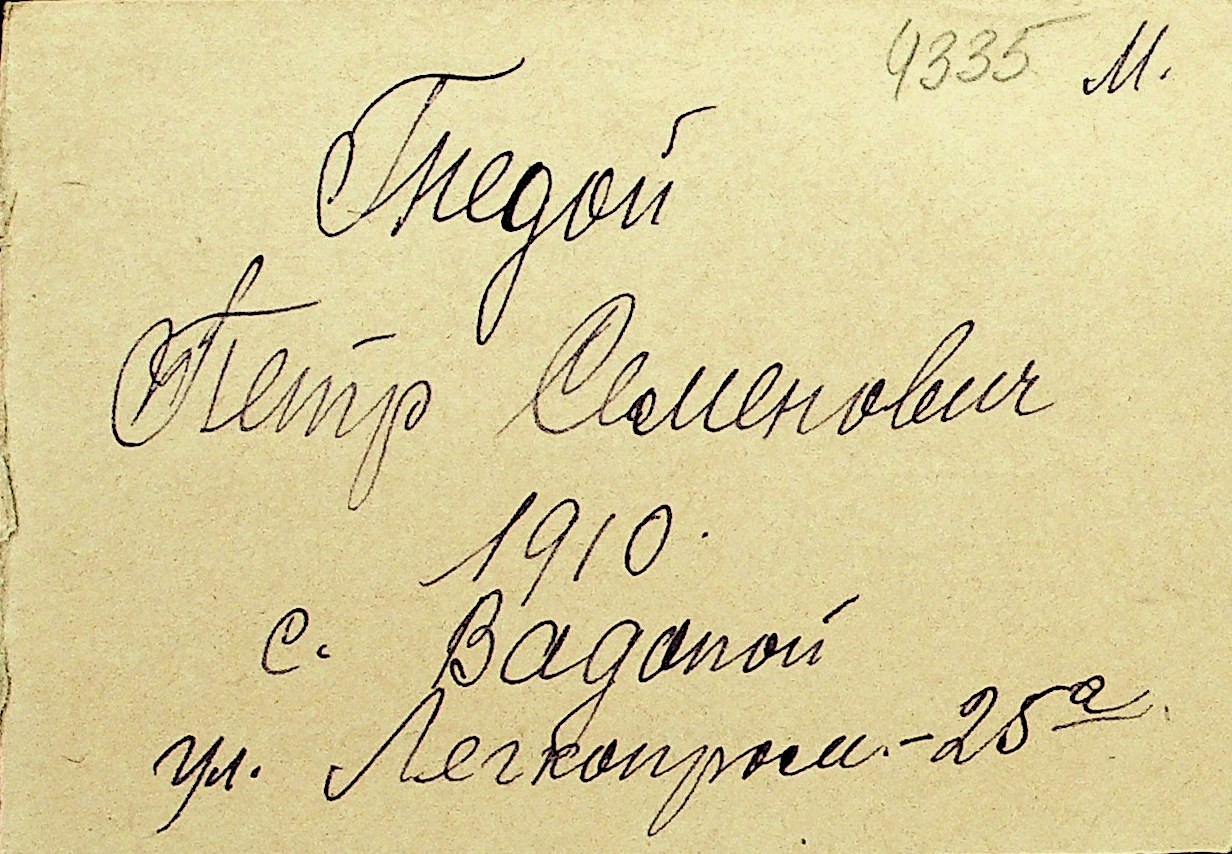 4335 М.
Гнедой
Петр Семенович
1910.
с. Вадопой
ул. Легкопром.-25а